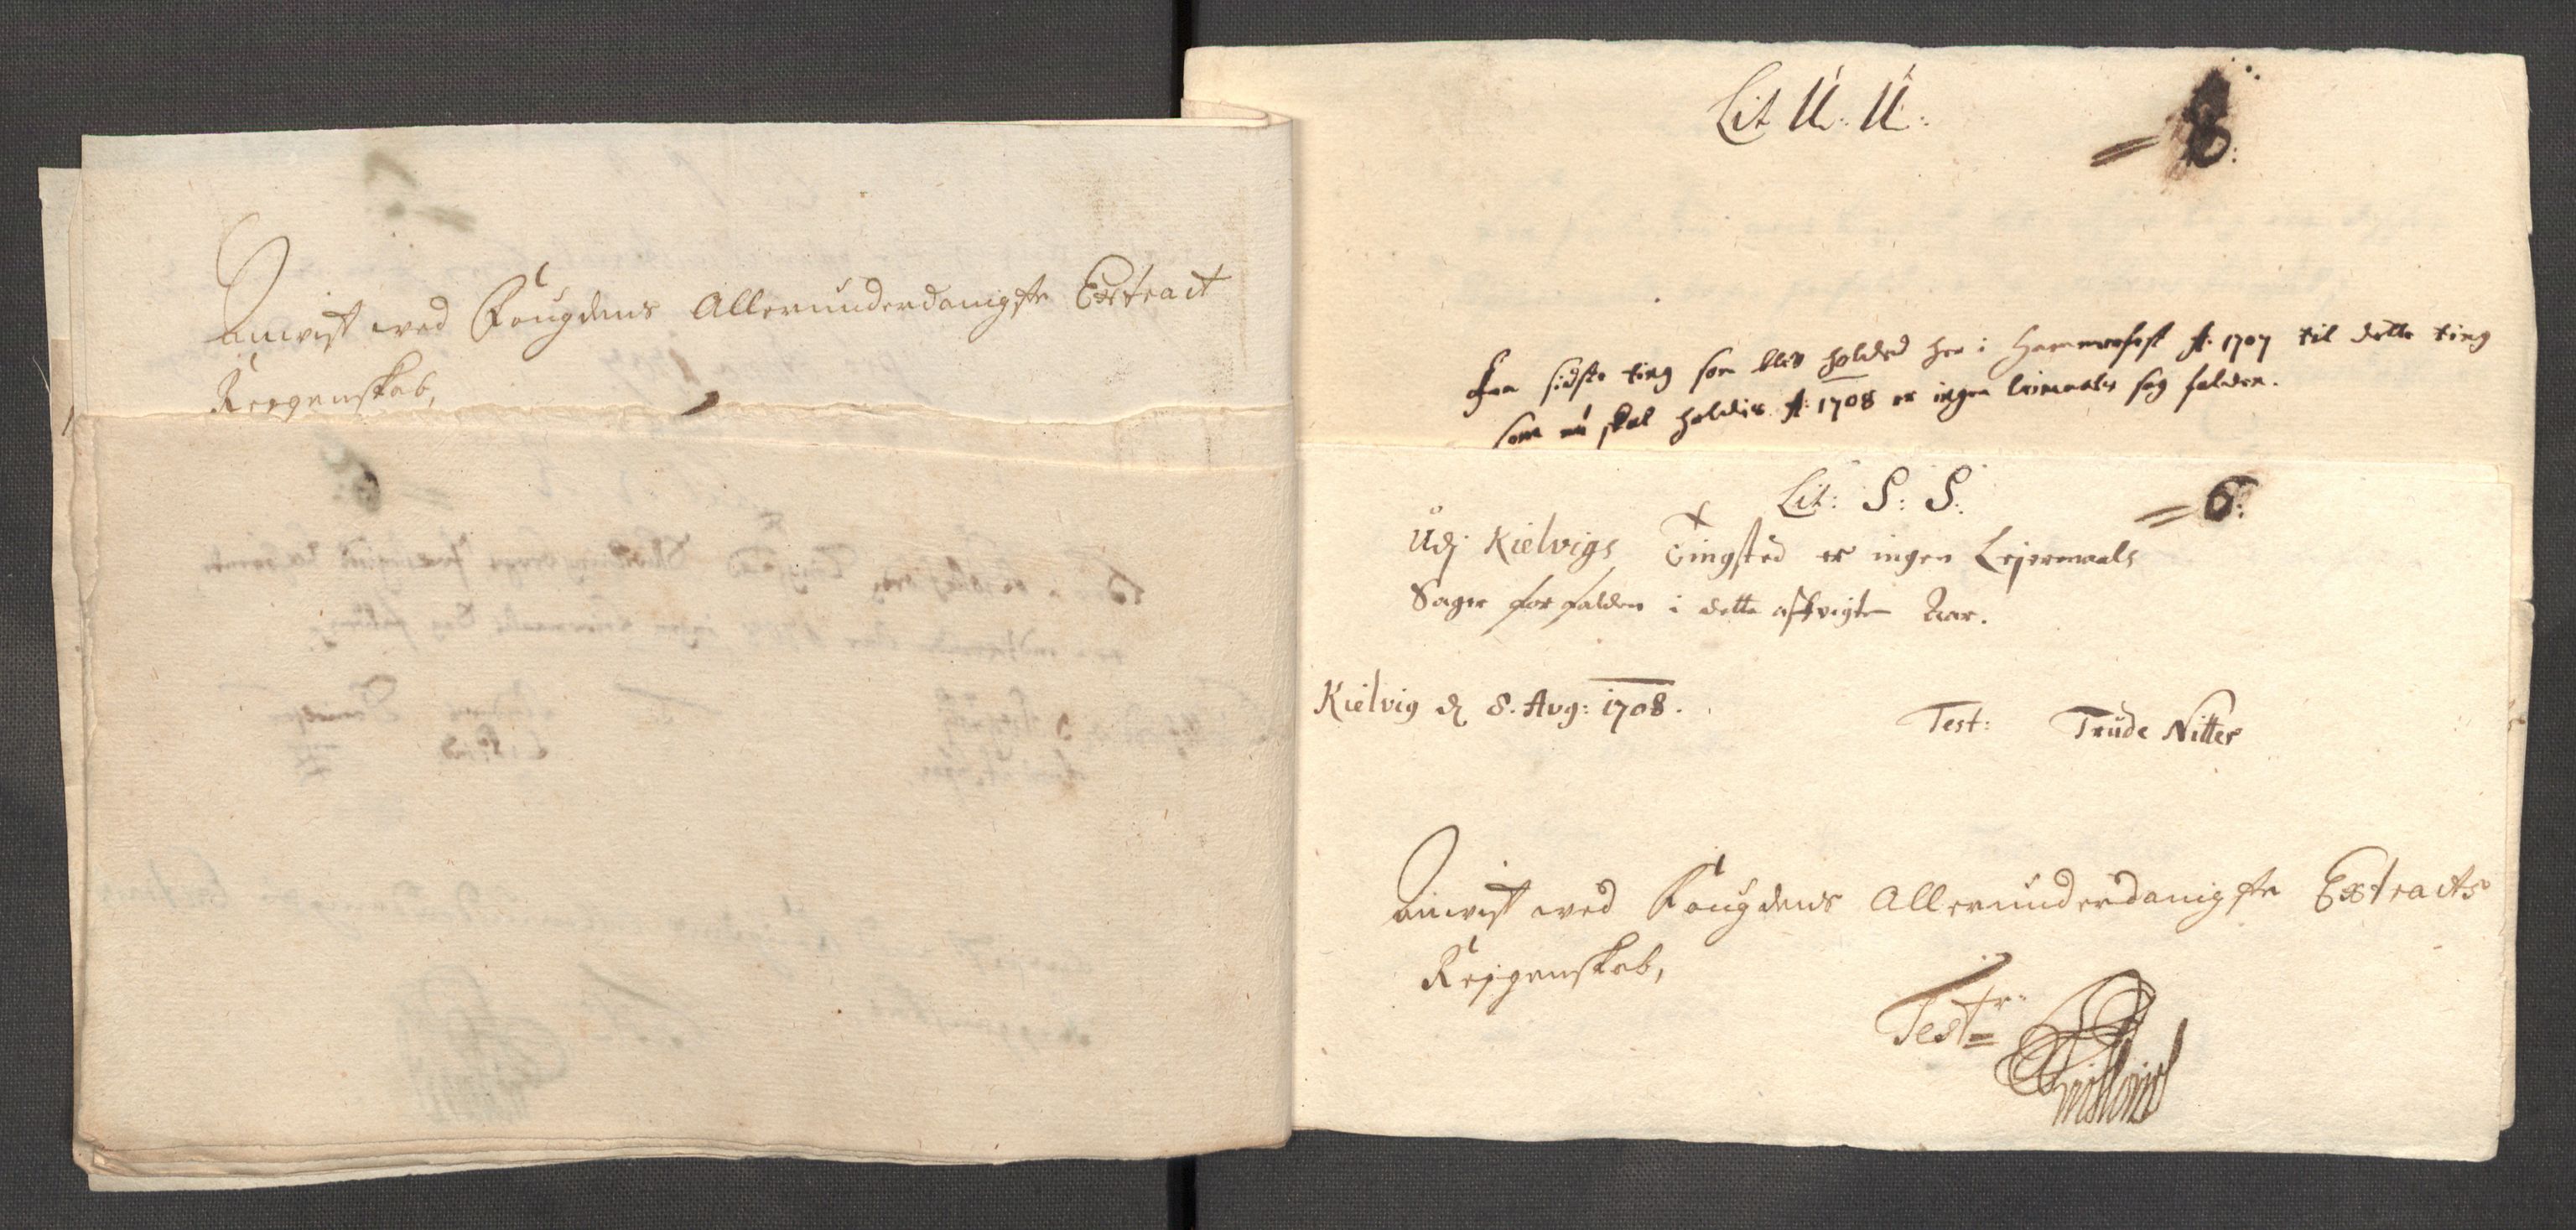 Anvist ved Fougdens Allerunderdanigste Extract
Regenskab,
Lit U: U:
= 8:
Fra sidste ting som blef holded her i Hammerfest Ao: 1707 til dette ting
som nu skal holdis Ao: 1708 er ingen leiermaals sag falden.
Lit: S: S:
= 6:
Udj Kielvigs Tingsted er ingen Lejermaals
Sager forfalden i dette afvigte Aar.
Kielvig d 8. Aug: 1708.
Test: Trude Nitter
Anvist ved Fougdens Allerunderdanigste Extracts
Regenskab,
Test